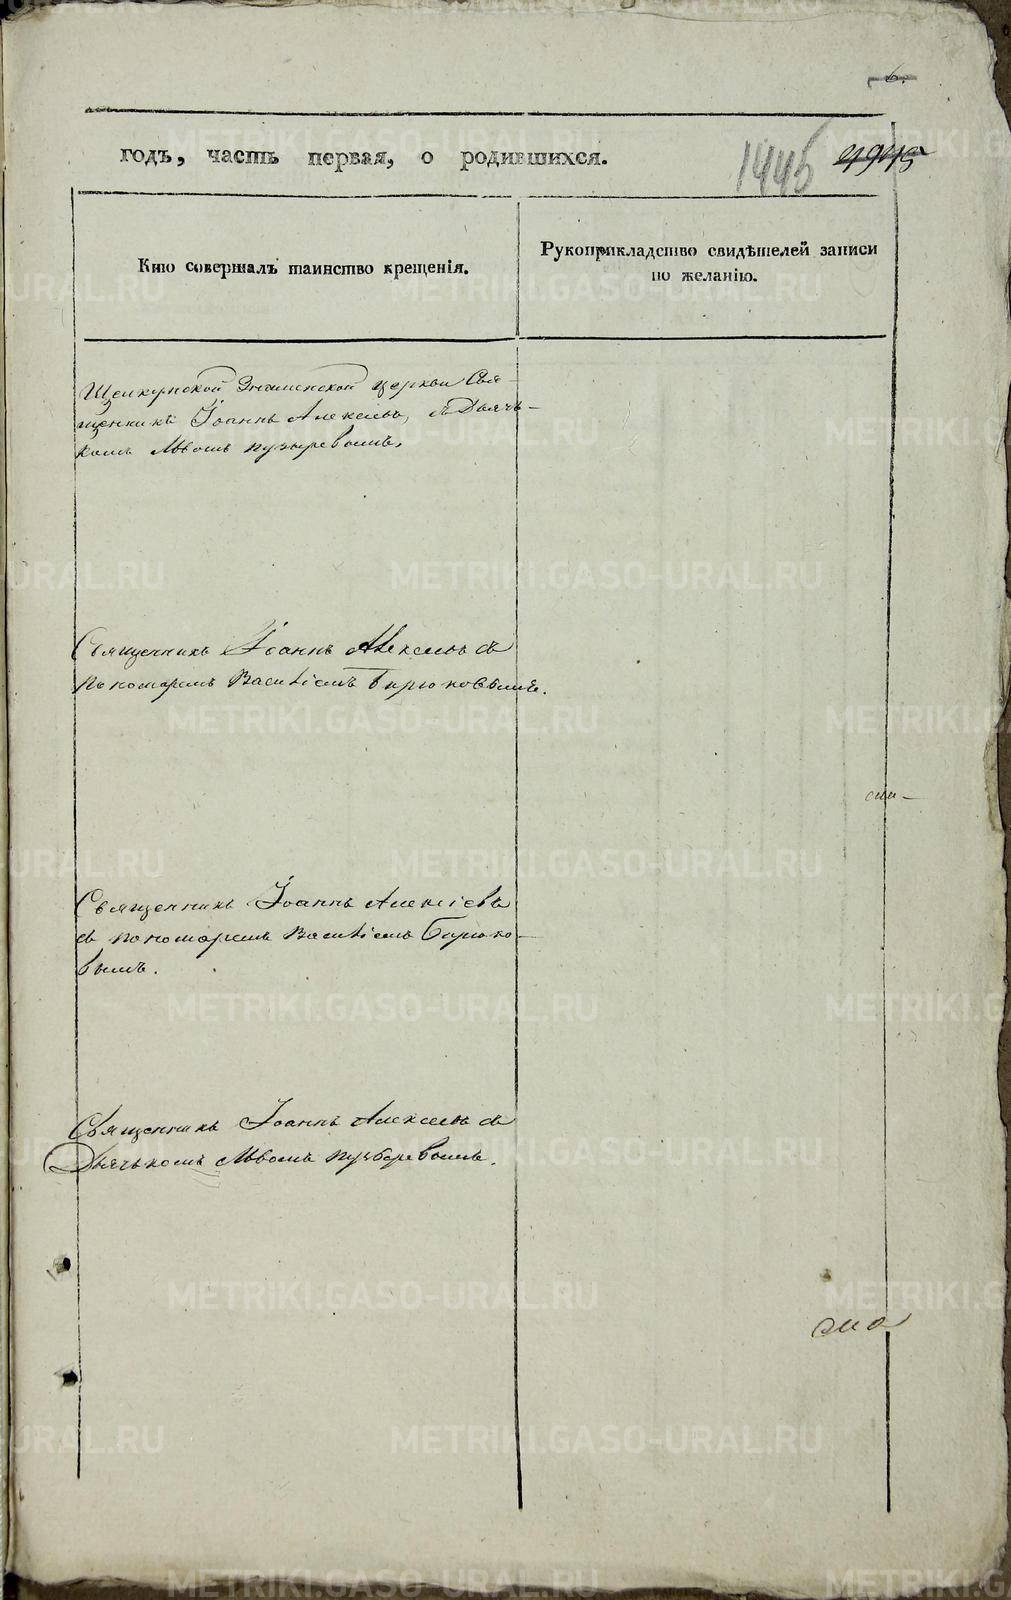 6.
годъ, часть первая, о родившихся.
1445
4945
Кто совершалъ таинство крещенія.
Рукоприкладство свидѣтелей записи
по желанію.
Щелкунской Знаменской церкви Свя-
щенникъ Іоаннъ Алексѣевъ, съ Дьячь-
комъ Львомъ Пузыревымъ.
Священникъ Іоаннъ Алексѣевъ съ
пономаремъ Василіемъ Бирюковымъ.
Священникъ Іоаннъ Алексіевъ
съ пономаремъ Василіемъ Бирюко-
вымъ.
Священникъ Іоаннъ Алексѣевъ съ
Дьячькомъ Львомъ Пузыревымъ.
METRIKI.GASO-URAL.RU